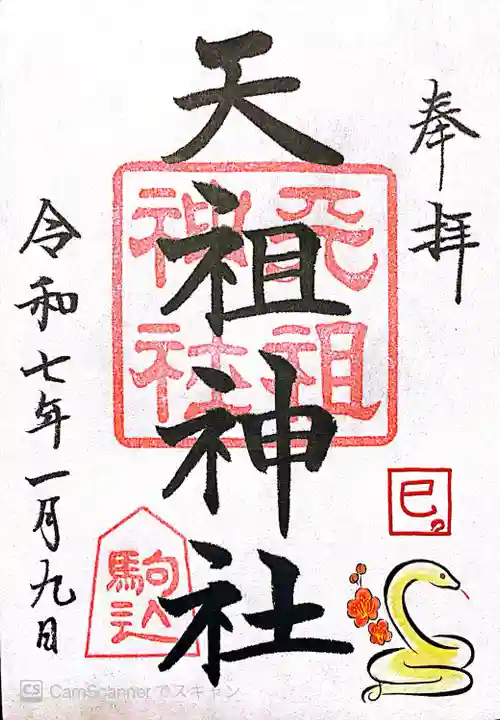 奉拝
天祖神社
天祖
神社
駒込
巳
令和七年一月九日
CS CamScannerでスキャン